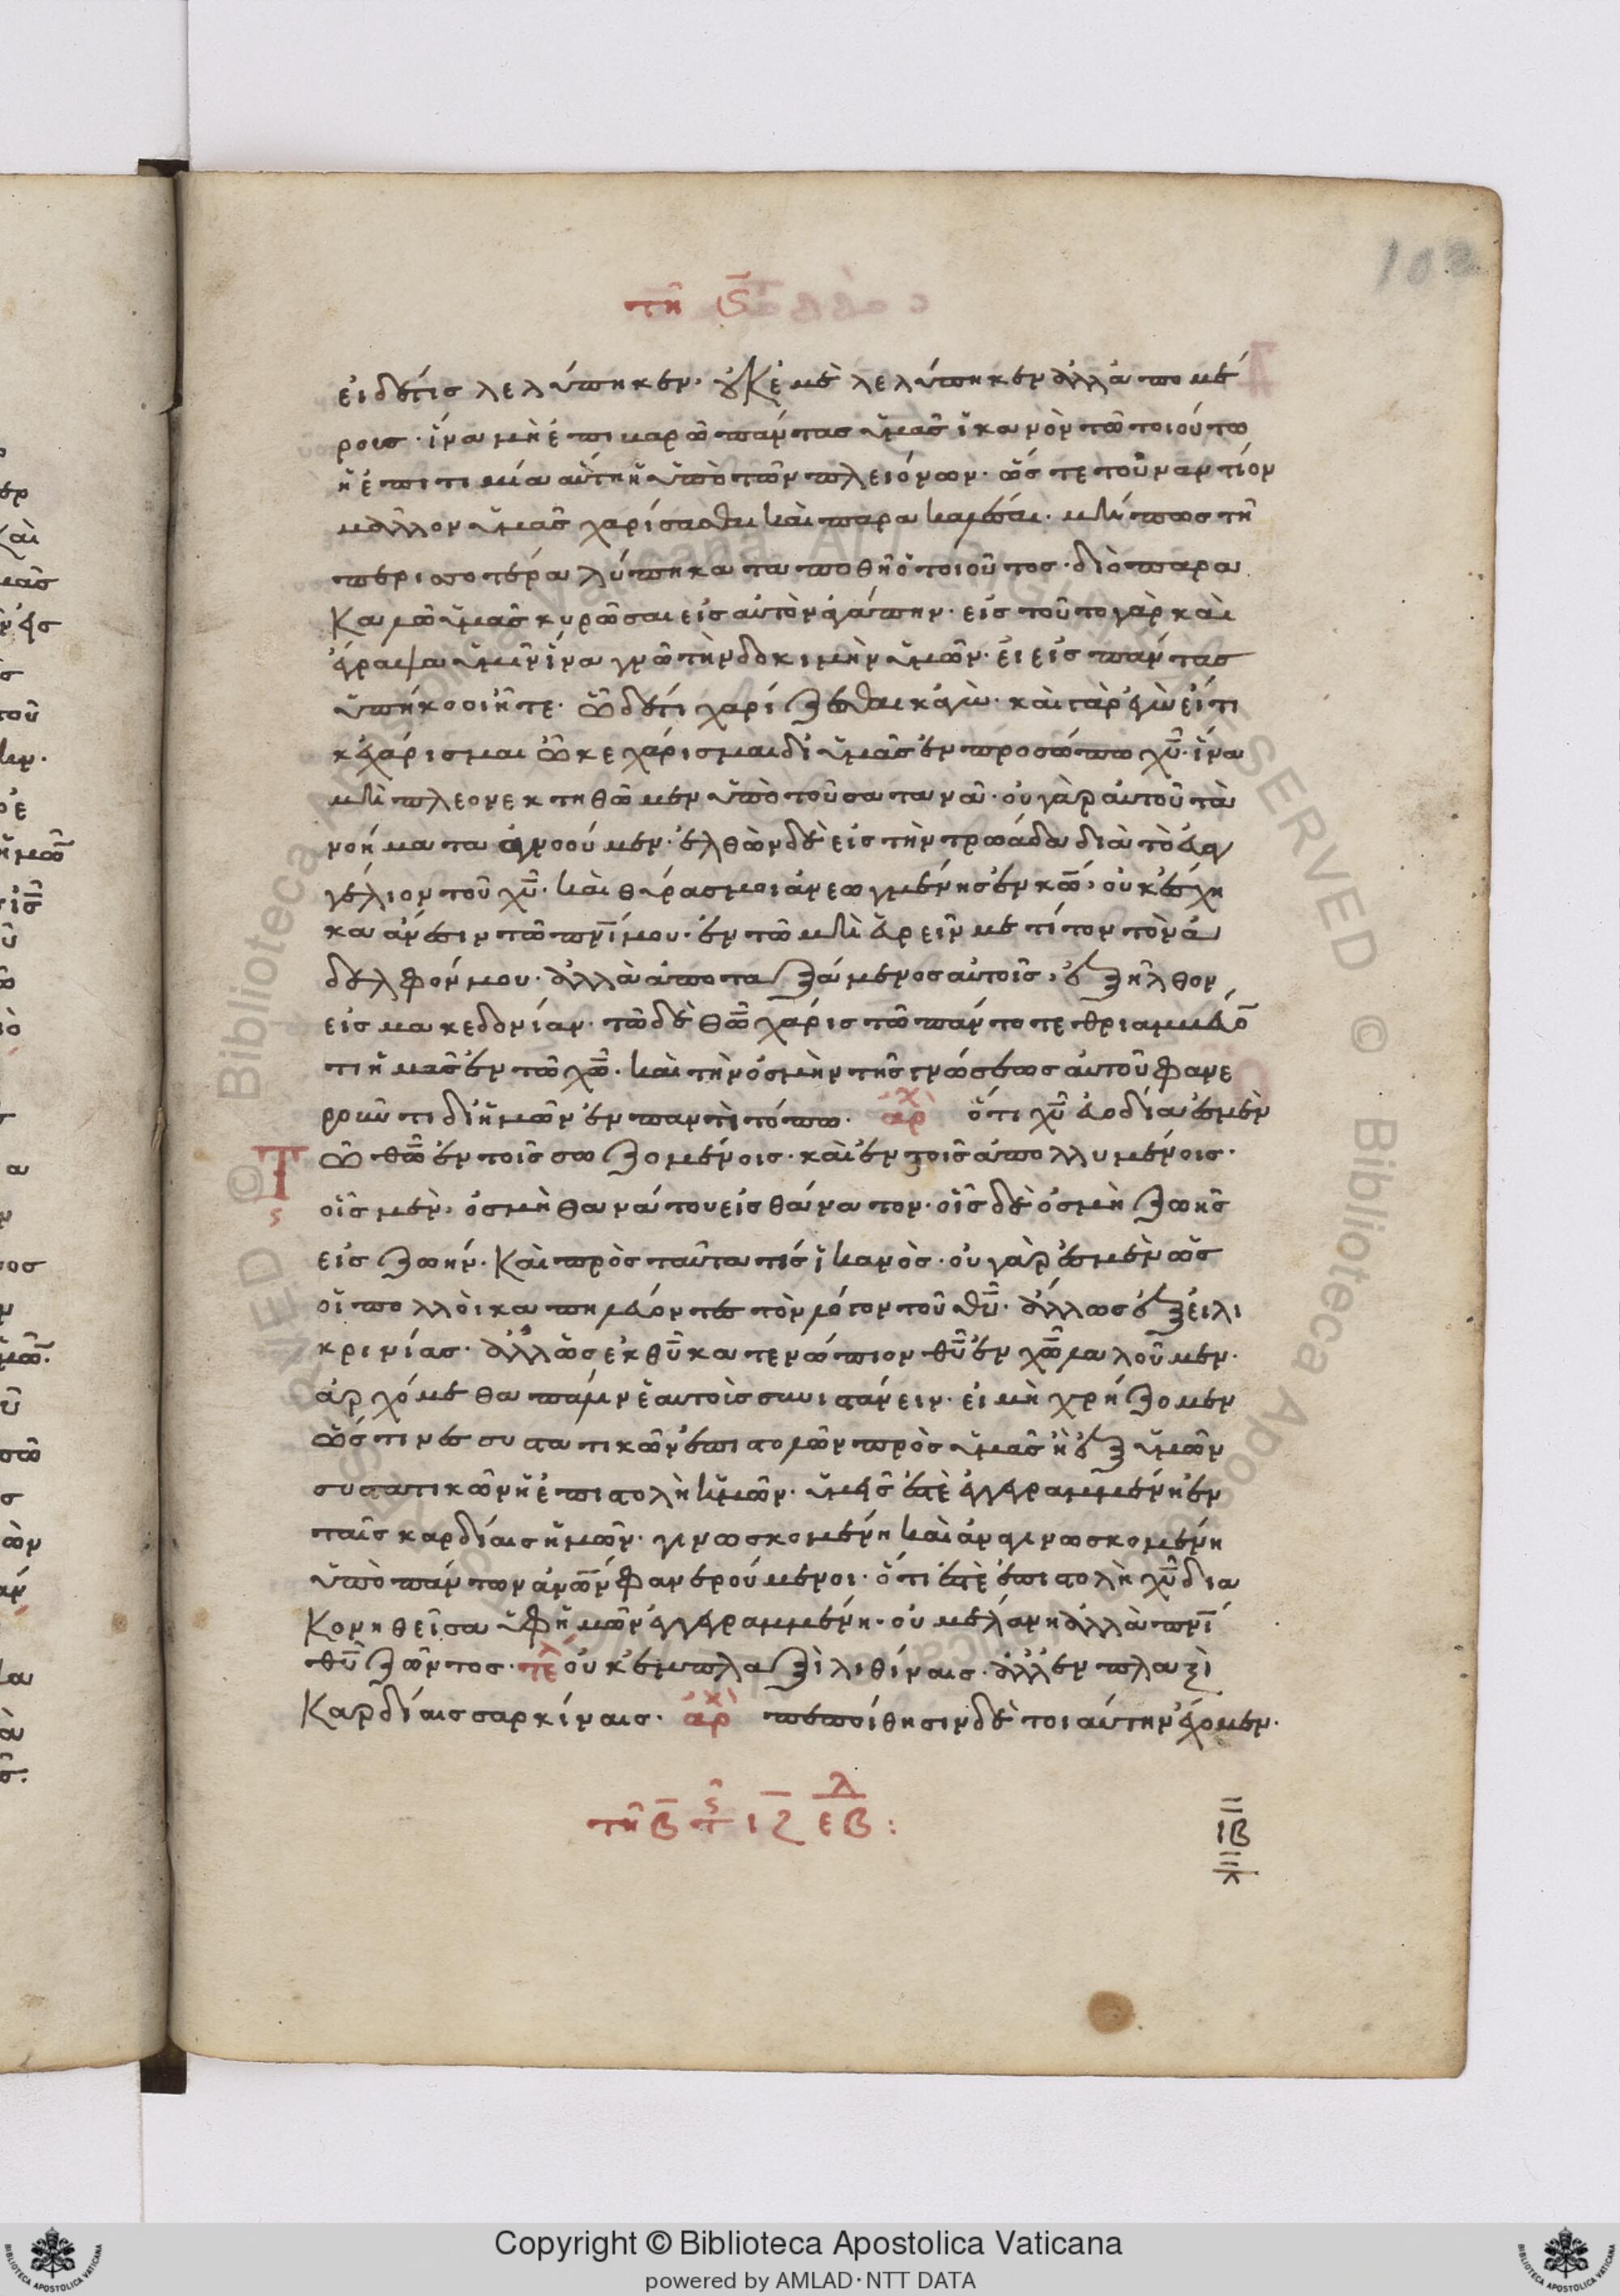 102
τῆ ϛ̄
εἰ δέ τίς λελύπηκεν· οὐκ ἐμὲ λελύπηκεν ἀλλὰ ἀπο μέ
ρους· ἵνα μὴ ἐπιβαρῶ πάντας ὑμᾶς ἱκανὸν τῶ τοιούτω
ἡ ἐπιτιμία αὕτη ἡ ὑπὸ τῶν πλειόνων· ὥστε τοὐναντίον
μᾶλλον ὑμᾶς χαρίσασθαι καὶ παρακαλέσαι· μή πως τῆ
περισσοτέρα λύπη καταποθῆ ὁ τοιοῦτος· διὸ παρα
καλῶ ὑμᾶς κυρῶσαι εἰς αὐτὸν ἀγάπην· εἰς τοῦτο γὰρ καὶ
ἔγραψα ὑμῖν ἵνα γνῶ τὴν δοκιμὴν ὑμῶν· εἰ εἰς πάντας
ὑπήκοοί ἦτε· ὧ δέ τι χαρίζεσθαι κἀγὼ· καὶ γὰρ ἐγὼ εἴ τι
κεχάρισμαι ὧ κεχάρισμαι δι ὑμᾶς ἐν προσώπω χ̅υ̅· ἵνα
μὴ πλεονεκτηθῶμεν ὑπὸ τοῦ σατανᾶ· οὐ γὰρ αὐτοῦ τὰ
νοήματα ἀγνοούμεν· ἐλθὼν δὲ εἰς τὴν τρωάδα διὰ τὸ εὐαγ
γέλιον τοῦ χ̅υ̅· καὶ θύρας μοι ἀνεωγμένης ἐν κ̅ω̅, οὐκ ἔσχη
κα ἄνεσιν τῶ π̅ν̅ι̅ μου· ἐν τῶ μὴ εὑρεῖν με τίτον τὸν ἀ
δελφόν μου· ἀλλὰ ἀποταξάμενος αὐτοῖς, ἐξῆλθον
εἰς μακεδονίαν· τῶ δὲ θ̅ω̅ χάρις τῶ πάντοτε θριαμβεύο̅
τι ἡμᾶς ἐν τῶ χ̅ω̅· καὶ τὴν ὀσμὴν τῆς γνώσεως αὐτοῦ φανε
ροῦντι δι ἡμῶν ἐν παντὶ τόπω· ἀρχ ὅτι χ̅υ̅ εὐωδία ἐσμὲν
Τ τῶ θ̅ω̅ ἐν τοῖς σωζομένοις· καὶ ἐν τοῖς ἀπολλυμένοις·
οἷς μὲν, ὀσμὴ θανάτου εἰς θάνατον· οἷς δὲ ὀσμὴ ζωῆς
εἰς ζωήν· καὶ πρὸς ταῦτα τίς ἱκανὸς· οὐ γάρ ἐσμὲν ὡς
οἱ πολλοὶ καπηλεύοντες τὸν λόγον τοῦ θ̅υ̅· ἀλλ ὡς ἐξ εἰλι
κρινίας· ἀλλ ὡς ἐκ θ̅υ̅ κατενώπιον θ̅υ̅ ἐν χ̅ω̅ λαλοῦμεν·
ἀρχόμεθα πάλιν ἑαυτοὶς συνιστάνειν· εἰ μὴ χρήζομεν
ὥς τινες συστατικῶν ἐπιστολῶν πρὸς ὑμᾶς ἢ ἐξ ὑμῶν
συστατικῶν ἡ ἐπιστολὴ ἡμῶν· ὑμεῖς ἐστὲ ἐγγεγραμμένη ἐν
ταῖς καρδίαις ἡμῶν· γινωσκομένη καὶ ἀναγινωσκομένη
ὑπὸ πάντων ἀν̅ω̅ν φανερούμενοι· ὅτι ἐστὲ ἐπιστολὴ χ̅υ̅ δια
κονηθεῖσα ὑφ ἡμῶν ἐγγεγραμμένη· οὐ μέλανη ἀλλὰ π̅ν̅ι̅
θ̅υ̅ ζῶντος· τε οὐκ ἐμ πλαξὶ λιθίναις· ἀλλ ἐν πλαξὶ
καρδίαις σαρκίναις· ἀρχ πεποίθησιν δὲ τοιαύτην ἔχομεν·
τῆ β̅ τ̅ς ι̅ζ̅ ε̅β̅λ:
ιβ